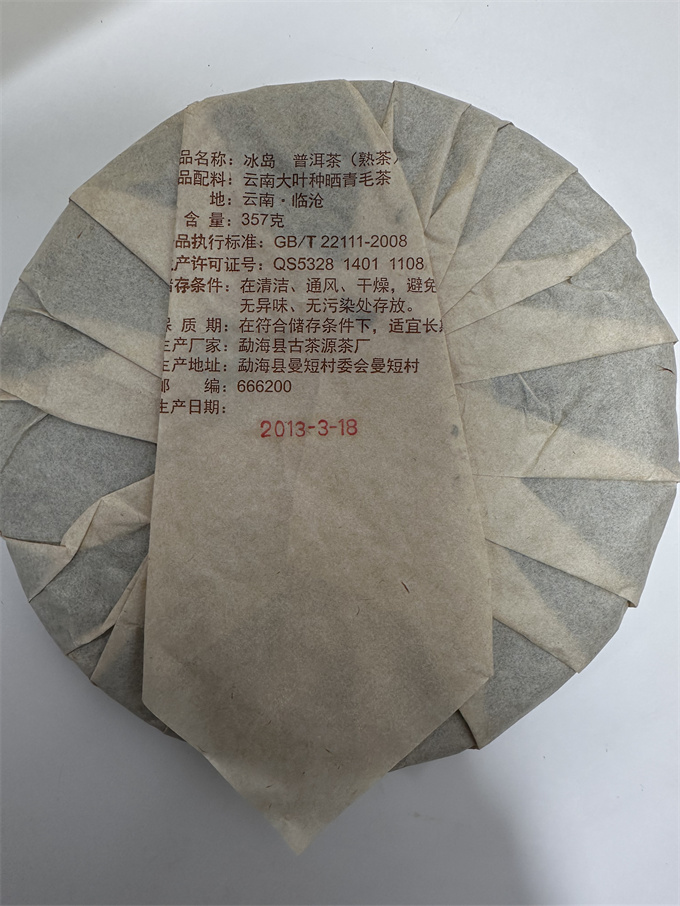 品名称：冰岛 普洱茶（熟茶）
品配料：云南大叶种晒青毛茶
地：云南·临沧
含 量：357克
品执行标准：GB/T 22111-2008
产许可证号：QS5328 1401 1108
储存条件：在清洁、通风、干燥，避免
无异味、无污染处存放。
保 质 期：在符合储存条件下，适宜长期
生产厂家：勐海县古茶源茶厂
生产地址：勐海县曼短村委会曼短村
邮 编：666200
生产日期：
2013-3-18